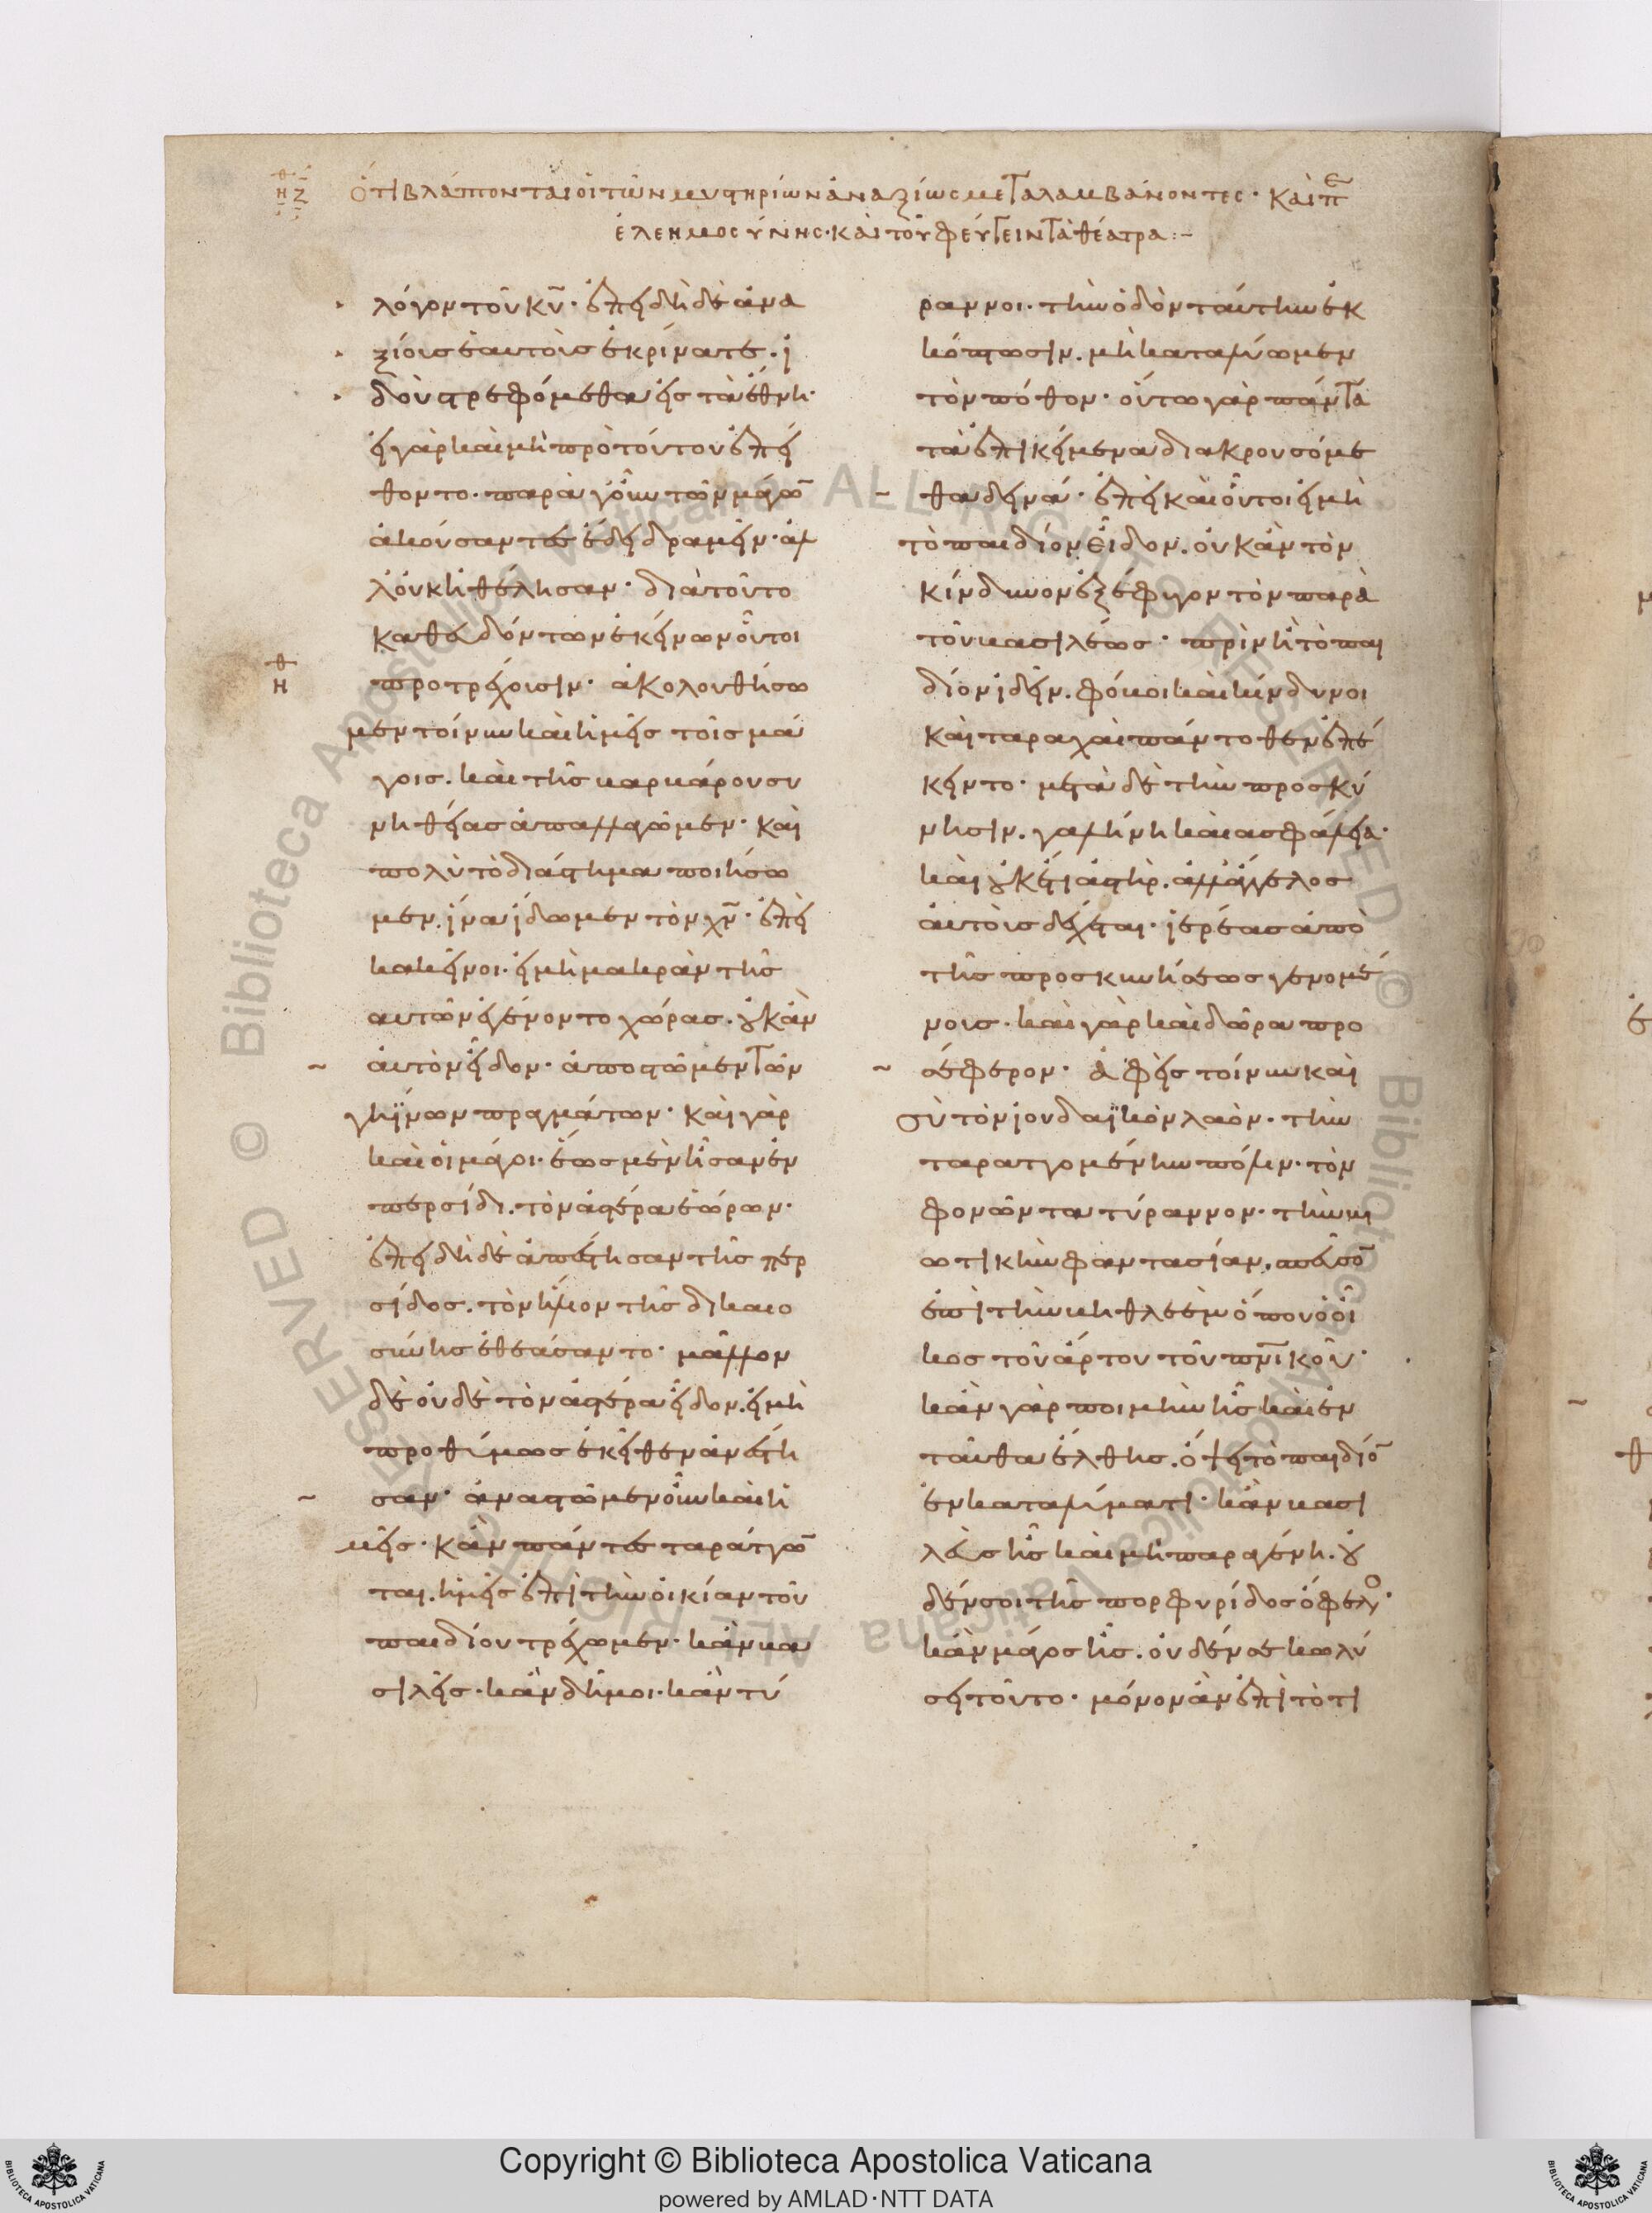 ὅτι βλάπτονται οἱ τῶν μυστηρίων ἀναξίως μεταλαμβάνοντες· καὶ π
ἐλεημοσύνης· καὶ τοῦ φεύγειν τὰ θέατρα:–
λόγον τοῦ κυ· ἐπειδὴ δὲ ἀνα
ξίοις ἑαυτοὺς ἐκρίνατε. ἰ
δοὺ στρεφόμεθα εἰς τὰ ἔθνη·
εἰ γὰρ καὶ μὴ πρὸ τούτου ἐπεί
θοντο· παρὰ γοῦν τῶν μάγω
ἀκούσαντες ἔδει δραμεῖν· ἀλ
λ' οὐκ ἠθέλησαν· διὰ τοῦτο
καθευδόντων ἐκείνων οὗτοι
προτρέχουσιν· ἀκολουθήσω
μεν τοίνυν καὶ ἡμεῖς τοῖς μά
γοις. καὶ τῆς βαρβάρου συ
νηθείας ἀπαλλαγῶμεν· καὶ
πολὺ τὸ διάστημα ποιήσω
μεν. ἵνα ἴδωμεν τὸν χν· ἐπεὶ
κἀκεῖνοι. εἰ μὴ μακρὰν τῆς
αὐτῶν ἐγένοντο χώρας. οὐκ ἂν
αὐτὸν εἶδον· ἀποστῶμεν τῶν
γηΐνων πραγμάτων· καὶ γὰρ
καὶ οἱ μάγοι. ἕως μὲν ἦσαν ἐν
περσίδι. τὸν ἀστέρα ἑώρων·
ἐπειδὴ δὲ ἀπέστησαν τῆς περ
σίδος. τὸν ἥλιον τῆς δικαιο
σύνης ἐθεάσαντο· μᾶλλον
δὲ οὐδὲ τὸν ἀστέρα εἶδον. εἰ μὴ
προθύμως ἐκεῖθεν ἀνέστη
σαν· ἀναστῶμεν οὖν καὶ ἡ
μεῖς· κἂν πάντες ταράττω
ται. ἡμεῖς ἐπὶ τὴν οἰκίαν τοῦ
παιδίου τρέχωμεν· κἂν βα
σιλεῖς· κἂν δῆμοι· κἂν τύ
ραννοι· τὴν ὁδὸν ταύτην ἐκ
κόπτωσιν. μὴ καταλύωμεν
τὸν πόθον· οὕτω γὰρ πάντα
τὰ ἐπικείμενα διακρουσόμε
θα δεινά· ἐπεὶ καὶ οὗτοι εἰ μὴ
τὸ παιδίον εἶδον. οὐκ ἂν τὸν
κίνδυνον ἐξέφυγον τὸν παρὰ
τοῦ βασιλέως· πρὶν ἢ τὸ παι
δίον ἰδεῖν. φόβοι καὶ κίνδυνοι
καὶ ταραχαὶ πάντοθεν ἐπέ
κειντο· μετὰ δὲ τὴν προσκύ
νησιν. γαλήνη καὶ ἀσφάλεια·
καὶ οὐκέτι ἀστὴρ. ἀλλ' ἄγγελος
αὐτοὺς δέχεται· ἱερέας ἀπὸ
τῆς προσκυνήσεως γενομέ
νους· καὶ γὰρ καὶ δῶρα προ
σέφερον· ἀφεὶς τοίνυν καὶ
σὺ τὸν ἰουδαϊκὸν λαὸν· τὴν
ταραττομένην πόλιν· τὸν
φονῶντα τύραννον· τὴν βι
ωτικὴν φαντασίαν. σπεῦσο
ἐπὶ τὴν βηθλεὲμ ὅπου ὁ οἶ
κος τοῦ ἄρτου τοῦ πνικοῦ·
κἂν γὰρ ποιμὴν ᾖς καὶ ἐν
ταῦθα ἔλθῃς. ὄψει τὸ παιδίο
ἐν καταλύματι· κἂν βασι
λεὺς ᾖς καὶ μὴ παραγένῃ. οὐ
δέν σοι τῆς πορφυρίδος ὄφελο·
κἂν μάγος ᾖς. οὐδέν σε κωλύ
σει τοῦτο· μόνον ἂν ἐπὶ τὸ τι
Copyright © Biblioteca Apostolica Vaticana
powered by AMLAD·NTT DATA